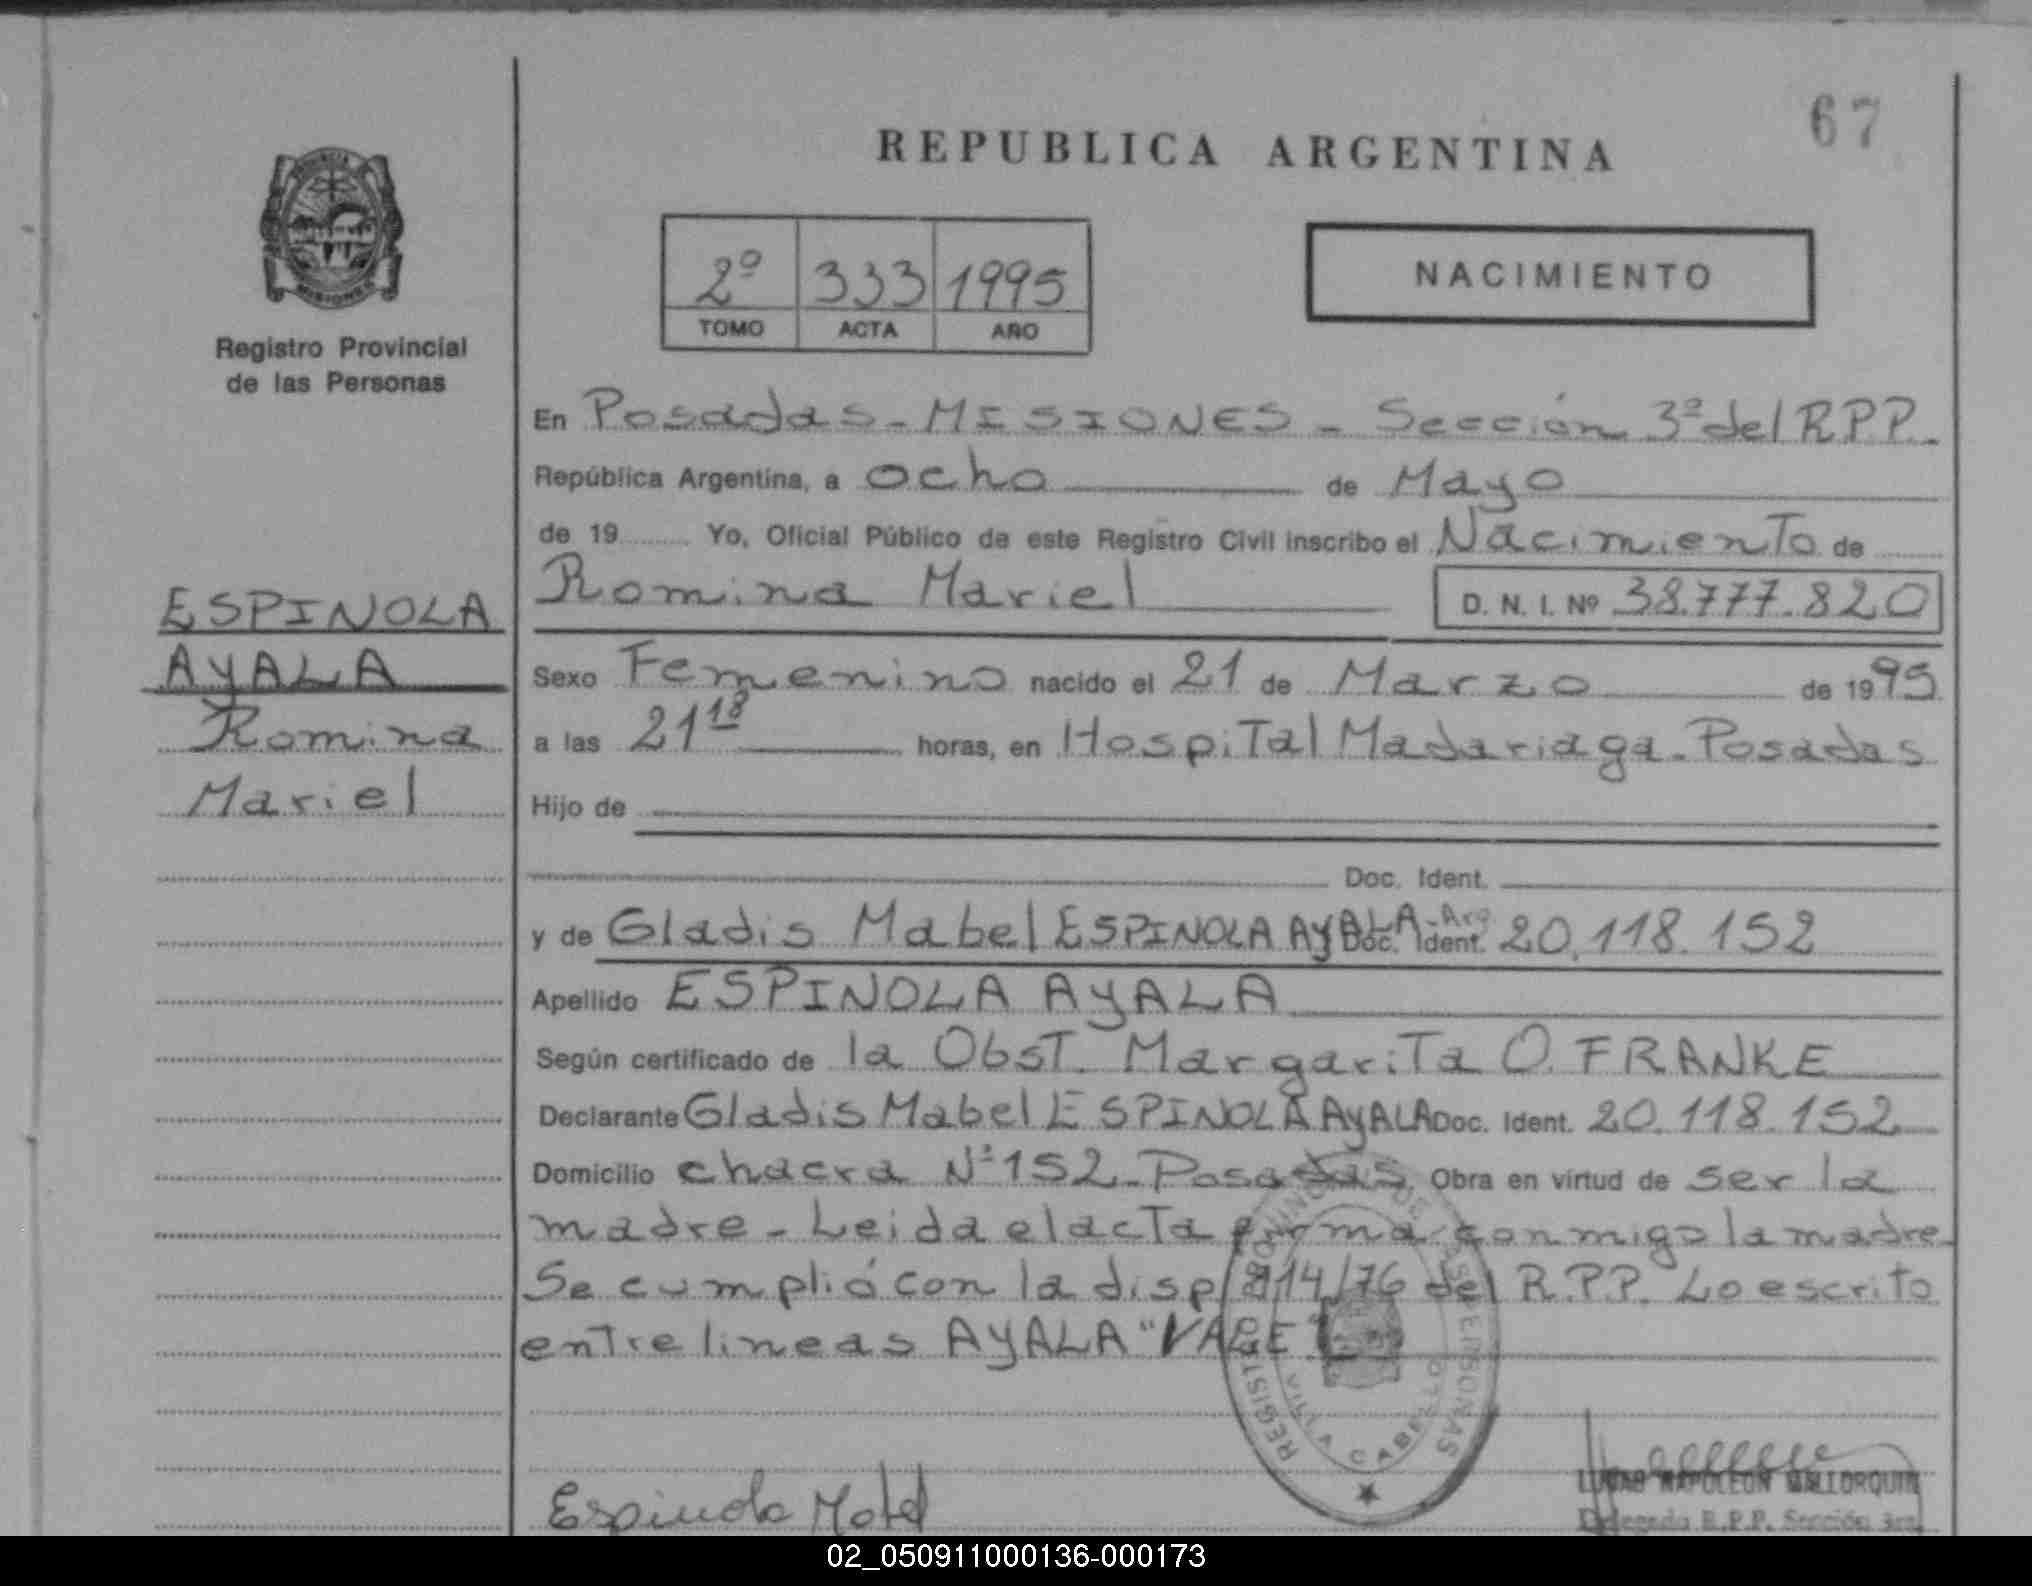 67
REPUBLICA ARGENTINA
PROVINCIA
MISIONES
Registro Provincial
de las Personas
2º 333 1995
TOMO ACTA AÑO
NACIMIENTO
En Posadas - MISIONES - Sección 3ª del R.P.P.
República Argentina, a ocho de Mayo
de 19 Yo, Oficial Público de este Registro Civil inscribo el Nacimiento de
Romina Mariel D. N. I. Nº 38.777.820
ESPINOLA
AYALA
Romina
Mariel
Sexo Femenino nacido el 21 de Marzo de 1995
a las 21 18 horas, en Hospital Madariaga - Posadas
Hijo de
Doc. Ident.
y de Gladis Mabel ESPINOLA AYALA - Arg. Doc. Ident. 20.118.152
Apellido ESPINOLA AYALA
Según certificado de la Obst. Margarita O. FRANKE
Declarante Gladis Mabel ESPINOLA AYALA Doc. Ident. 20.118.152
Domicilio chacra Nº 152 - Posadas Obra en virtud de ser la
madre - Leida el acta firma conmigo la madre
Se cumplió con la disp 114/76 del R.P.P. Lo escrito
entre lineas AYALA "VALE"
REGISTRO PROVINCIAL DE LAS PERSONAS
VILLA CABELLO
Espinola
NAPOLEON MALLORQUIN
Delegado R.P.P. Sección 3ra.
02_050911000136-000173